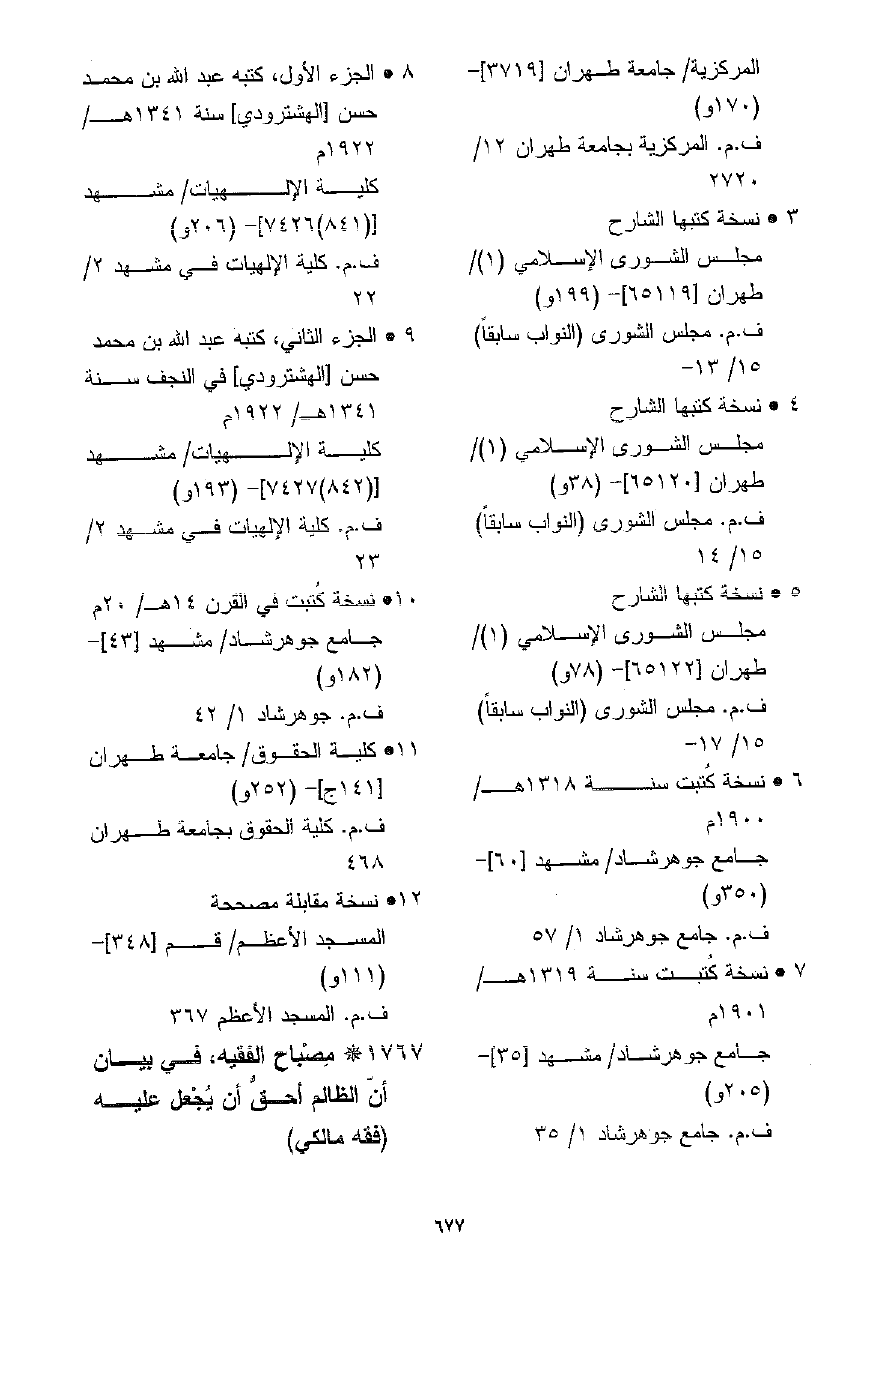 المركزية/ جامعة طهران [٣٧١٩]-
(١٧٠و)
ف.م. المركزية بجامعة طهران ١٢/
٢٧٢٠
٣ • نسخة كتبها الشارح
مجلس الشورى الإسلامي (١)/
طهران [٦٥١١٩]- (١٩٩و)
ف.م. مجلس الشورى (النواب سابقاً)
١٥/ ١٣-
٤ • نسخة كتبها الشارح
مجلس الشورى الإسلامي (١)/
طهران [٦٥١٢٠]- (٣٨و)
ف.م. مجلس الشورى (النواب سابقاً)
١٥/ ١٤
٥ • نسخة كتبها الشارح
مجلس الشورى الإسلامي (١)/
طهران [٦٥١٢٢]- (٧٨و)
ف.م. مجلس الشورى (النواب سابقاً)
١٥/ ١٧-
٦ • نسخة كُتبت سنة ١٣١٨هـ/
١٩٠٠م
جامع جوهرشاد/ مشهد [٦٠]-
(٣٥٠و)
ف.م. جامع جوهرشاد ١/ ٥٧
٧ • نسخة كُتبت سنة ١٣١٩هـ/
١٩٠١م
جامع جوهرشاد/ مشهد [٣٥]-
(٢٠٥و)
ف.م. جامع جوهرشاد ١/ ٣٥
٨ • الجزء الأول، كتبه عبد الله بن محمد
حسن [الهشترودي] سنة ١٣٤١هـ/
١٩٢٢م
كلية الإلهيات/ مشهد
[(٨٤١)٧٤٢٦]- (٢٠٦و)
ف.م. كلية الإلهيات في مشهد ٢/
٢٢
٩ • الجزء الثاني، كتبه عبد الله بن محمد
حسن [الهشترودي] في النجف سنة
١٣٤١هـ/ ١٩٢٢م
كلية الإلهيات/ مشهد
[(٨٤٢)٧٤٢٧]- (١٩٣و)
ف.م. كلية الإلهيات في مشهد ٢/
٢٣
١٠• نسخة كُتبت في القرن ١٤هـ/ ٢٠م
جامع جوهرشاد/ مشهد [٤٣]-
(١٨٢و)
ف.م. جوهرشاد ١/ ٤٢
١١• كلية الحقوق/ جامعة طهران
[١٤١ج]- (٢٥٢و)
ف.م. كلية الحقوق بجامعة طهران
٤٦٨
١٢• نسخة مقابلة مصححة
المسجد الأعظم/ قم [٣٤٨]-
(١١١و)
ف.م. المسجد الأعظم ٣٦٧
١٧٦٧ * مِصْباح الفَقيه، في بيان
أنّ الظالم أحقُّ أن يُجْعل عليه
(فقه مالكي)
٦٧٧